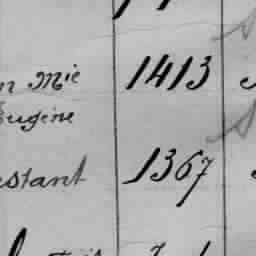 n Mie 1413
Eugène
estant 1367